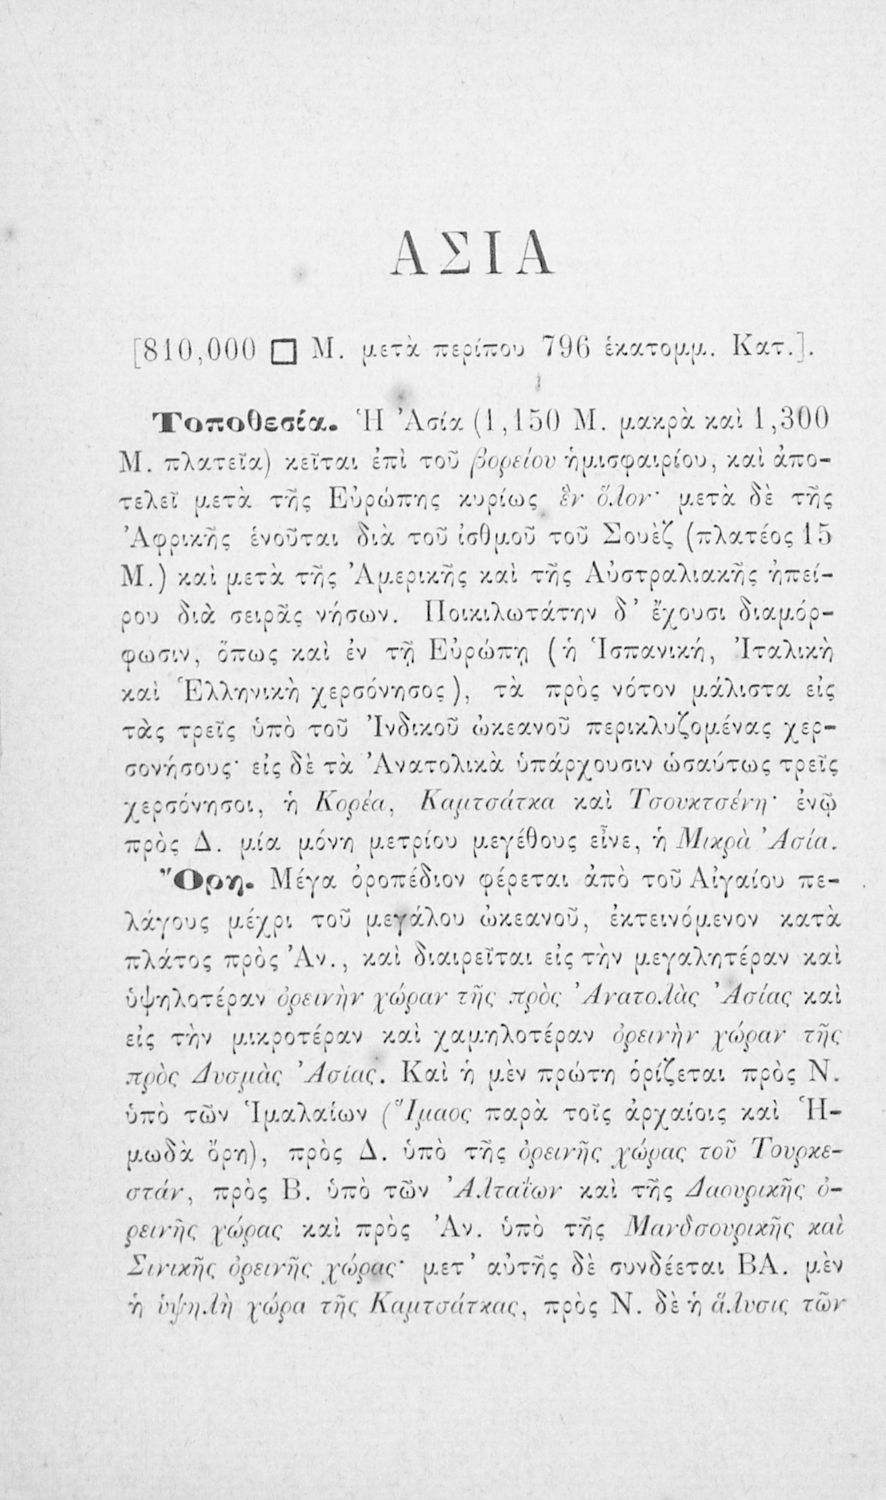 ΑΣΙΑ
[810,000 □ Μ. μετὰ περίπου 796 ἑκατομμ. Κατ.].
Τοποθεσία. Ἡ Ἀσία (1,150 Μ. μακρὰ καὶ 1,300
Μ. πλατεῖα) κεῖται ἐπὶ τοῦ βορείου ἡμισφαιρίου, καὶ ἀπο-
τελεῖ μετὰ τῆς Εὐρώπης κυρίως ἓν ὅλον· μετὰ δὲ τῆς
Ἀφρικῆς ἑνοῦται διὰ τοῦ ἰσθμοῦ τοῦ Σουὲζ (πλατέος 15
Μ.) καὶ μετὰ τῆς Ἀμερικῆς καὶ τῆς Αὐστραλιακῆς ἠπεί-
ρου διὰ σειρᾶς νήσων. Ποικιλωτάτην δ' ἔχουσι διαμόρ-
φωσιν, ὅπως καὶ ἐν τῇ Εὐρώπῃ (ἡ Ἱσπανική, Ἰταλικὴ
καὶ Ἑλληνικὴ χερσόνησος), τὰ πρὸς νότον μάλιστα εἰς
τὰς τρεῖς ὑπὸ τοῦ Ἰνδικοῦ ὠκεανοῦ περικλυζομένας χερ-
σονήσους· εἰς δὲ τὰ Ἀνατολικὰ ὑπάρχουσιν ὡσαύτως τρεῖς
χερσόνησοι, ἡ Κορέα, Καμτσάτκα καὶ Τσουκτσένη· ἐνῷ
πρὸς Δ. μία μόνη μετρίου μεγέθους εἶνε, ἡ Μικρὰ Ἀσία.
Ὄρη. Μέγα ὀροπέδιον φέρεται ἀπὸ τοῦ Αἰγαίου πε-
λάγους μέχρι τοῦ μεγάλου ὠκεανοῦ, ἐκτεινόμενον κατὰ
πλάτος πρὸς Ἀν., καὶ διαιρεῖται εἰς τὴν μεγαλητέραν καὶ
ὑψηλοτέραν ὀρεινὴν χώραν τῆς πρὸς Ἀνατολὰς Ἀσίας καὶ
εἰς τὴν μικροτέραν καὶ χαμηλοτέραν ὀρεινὴν χώραν τῆς
πρὸς Δυσμὰς Ἀσίας. Καὶ ἡ μὲν πρώτη ὁρίζεται πρὸς Ν.
ὑπὸ τῶν Ἱμαλαίων (Ἴμαος παρὰ τοῖς ἀρχαίοις καὶ Ἠ-
μωδὰ ὄρη), πρὸς Δ. ὑπὸ τῆς ὀρεινῆς χώρας τοῦ Τουρκε-
στάν, πρὸς Β. ὑπὸ τῶν Ἀλταΐων καὶ τῆς Δαουρικῆς ὀ-
ρεινῆς χώρας καὶ πρὸς Ἀν. ὑπὸ τῆς Μανδσουρικῆς καὶ
Σινικῆς ὀρεινῆς χώρας· μετ' αὐτῆς δὲ συνδέεται ΒΑ. μὲν
ἡ ὑψηλὴ χώρα τῆς Καμτσάτκας, πρὸς Ν. δὲ ἡ ἅλυσις τῶν